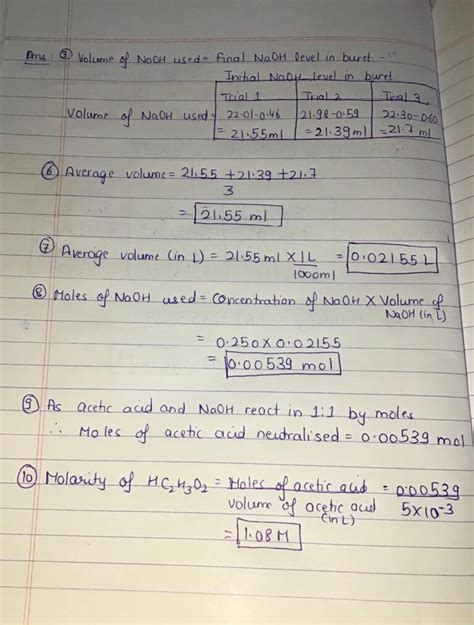 Ans: ⑤ Volume of NaOH used = Final NaOH level in buret -
Initial NaOH level in buret
Trial 1 Trial 2 Trial 3
Volume of NaOH used = 22.01-0.46 21.98-0.59 22.30-0.60
= 21.55ml = 21.39ml = 21.7 ml
⑥ Average volume = 21.55 + 21.39 + 21.7
3
= 21.55 ml
⑦ Average volume (in L) = 21.55ml × 1L = 0.02155 L
1000ml
⑧ Moles of NaOH used = Concentration of NaOH × Volume of
NaOH (in L)
= 0.250 × 0.02155
= 0.00539 mol
⑨ As acetic acid and NaOH react in 1:1 by moles
∴ Moles of acetic acid neutralised = 0.00539 mol
⑩ Molarity of HC₂H₃O₂ = Moles of acetic acid = 0.00539
volume of acetic acid 5×10⁻³
(in L)
= 1.08 M